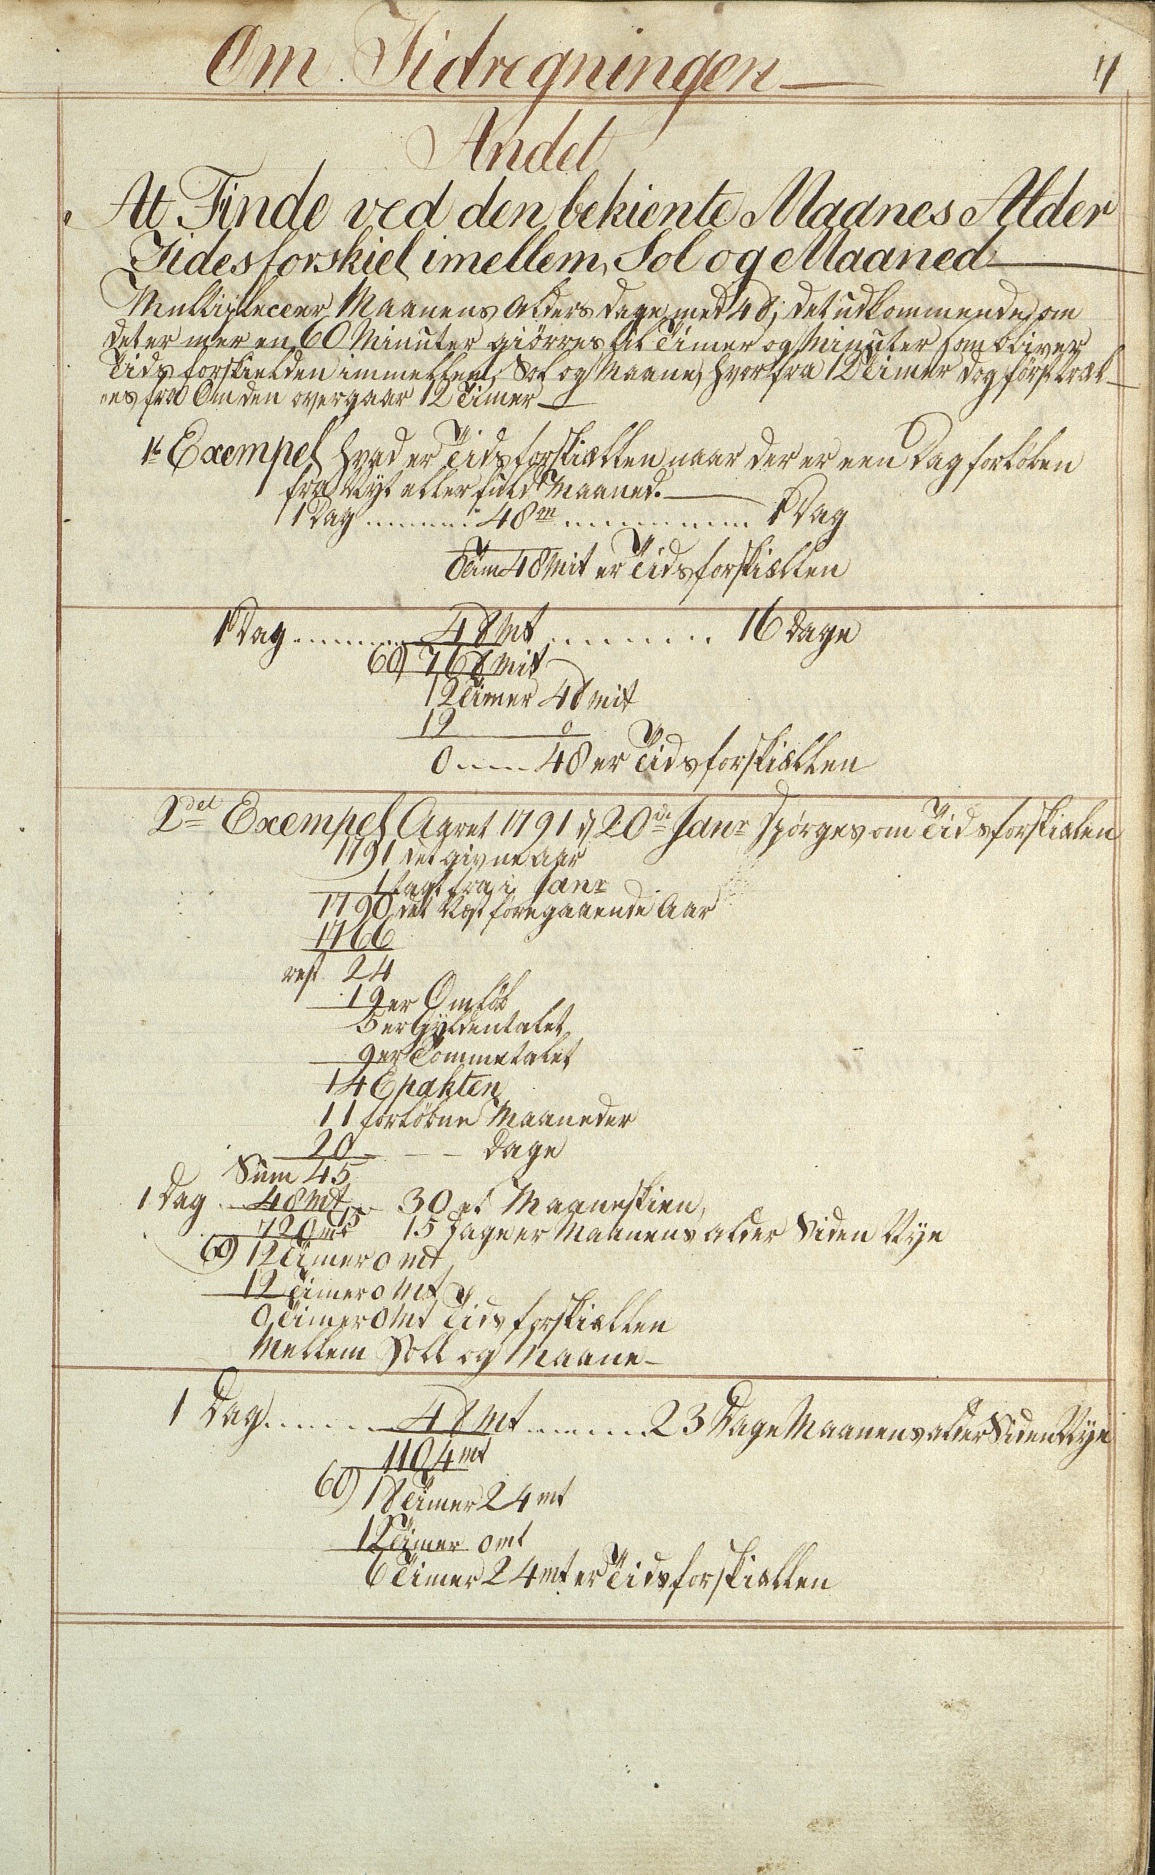 Om Tidregningen 11
Andet
At Finde ved den bekiente Maanes Alder
Tidesforskiel imellem Sol og Maaned
Multipliceer Maanens Alders dage med 48, det udkommende, om
det er mer en 60 Minuter giörres til Timer og Minuter som bliver
Tids forskielden immellem Sol og Maane, hvor fra 12 Timer dog først træk-
es fra Om den overgaar 12 Timer
1t Exempel hvad er Tidsforskiællen naar der er een Dag forløben
fra Nyt eller fuld Maaned.
1 Dag ...... 48m ............ 1 Dag
Tim 48 Mit er Tidsforskiællen
1 Dag ........ 48 Mt ........ 16 dage
60) 768 Mit
12 Timer 48 Mit
12 0
0 ..... 48 er Tidsforskiællen
2det Exempel Agret 1791 d 20de Janr spørges om Tidsforskiælen
1791 det givne aar
1 tagt fra i Janr
1790 det Næst foregaaende Aar
1766
rest 24
19 er Omløb
5 er Gyldentalet
9 er Tommetalet
14 Epakten
11 forløbne Maaneder
20 - - dage
Sum 45
1 Dag .. 48 Mt .. 30 et Maaneskien,
15
720 mt 15 Dage er Maanens alder Siden Nye
60) 12 Timer 0 mt
12 Timer 0 Mt
0 Timer 0 Mt Tidsforskiællen
Mellem Soll og Maane
1 Dag ........ 48 Mt ........ 23 Dage Maanens alder Siden Nye
1104 mt
60) 18 Timer 24 mt
12 Timer 0 mt
6 Timer 24 mt er Tidsforskiællen